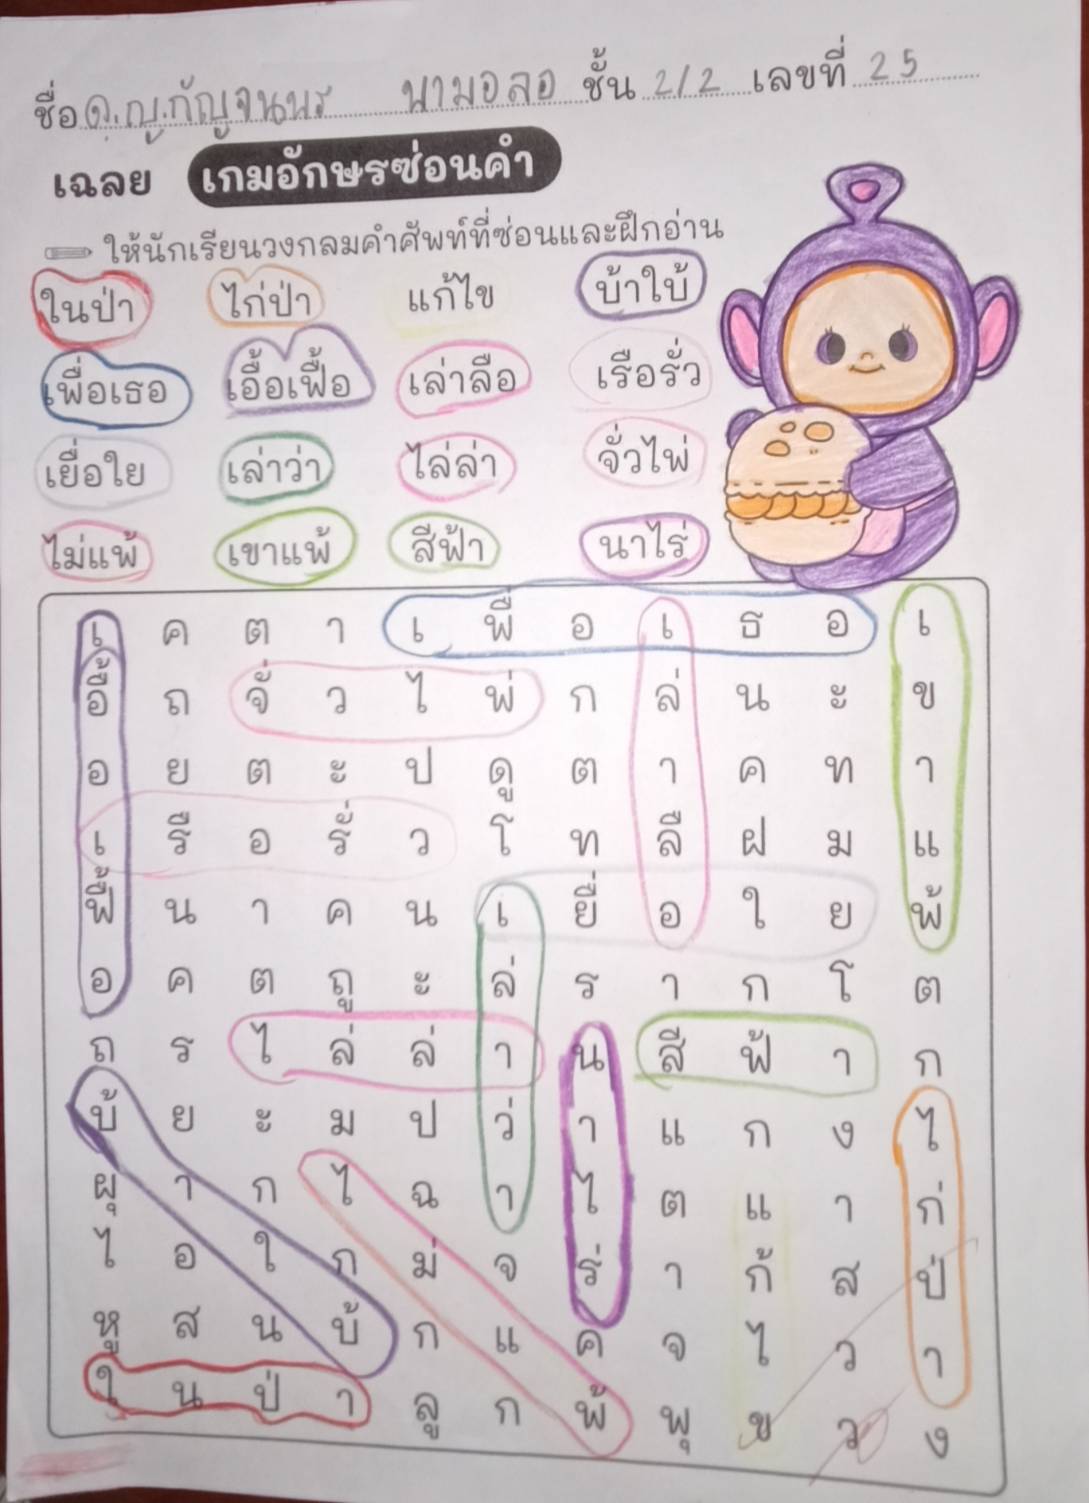 ชื่อ ด.ญ.กัญจนพร นามอลอ ชั้น 2/2 เลขที่ 25
เฉลย เกมอักษรซ่อนคำ
ให้นักเรียนวงกลมคำศัพท์ที่ซ่อนและฝึกอ่าน
ในป่า ไก่ป่า แก้ไข บ้าใบ้
เพื่อเธอ เอื้อเฟื้อ เล่าลือ เรือรั่ว
เยื่อใย เล่าว่า ไล่ล่า จั่วไพ่
ไม่แพ้ เขาแพ้ สีฟ้า นาไร่
เ ค ต า เ พื่ อ เ ธ อ เ
อื้ ถ จั่ ว ไ พ่ ก ล่ น ะ ข
อ ย ต ะ ป ดู ต า ค ท า
เ รื อ รั่ ว โ ท ลื ฝ ม แ
ฟื้ น า ค น เ ยื่ อ ใ ย พ้
อ ค ต ถู ะ ล่ ร า ก โ ต
ถ ร ไ ล่ ล่ า น สี ฟ้ า ก
บ้ ย ะ ม ป ว่ า แ ก ง ไ
ผุ า ก ไ ฉ า ไ ต แ า ก่
ไ อ ใ ก ม่ จ ร่ า ก้ ส ป่
หู ส น บ้ ก แ ค จ ไ ว า
ใ น ป่ า ลู ก พ้ พุ ข ว ง